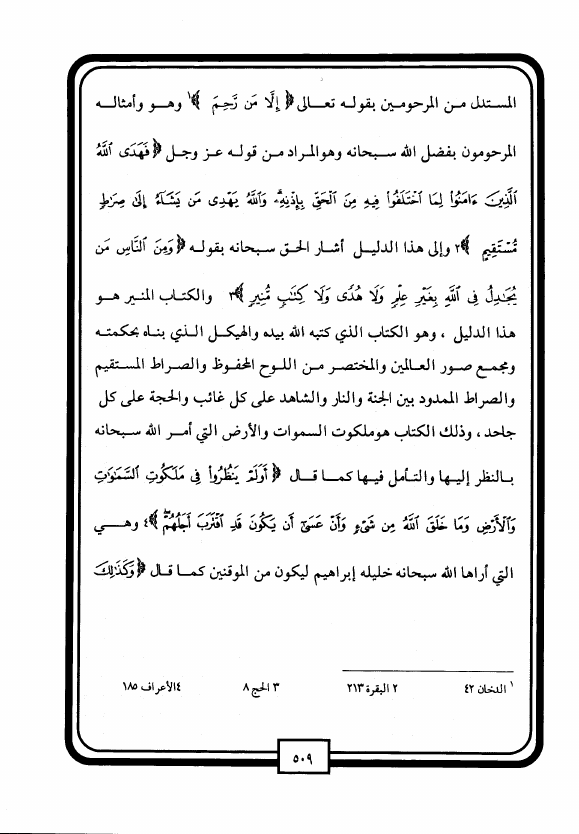 المستدل من المرحومين بقوله تعالى ﴿ إِلَّا مَن رَّحِمَ ﴾١ وهو وأمثاله
المرحومون بفضل الله سبحانه وهوالمراد من قوله عز وجل ﴿ فَهَدَى ٱللَّهُ
ٱلَّذِينَ ءَامَنُوا۟ لِمَا ٱخْتَلَفُوا۟ فِيهِ مِنَ ٱلْحَقِّ بِإِذْنِهِۦ وَٱللَّهُ يَهْدِى مَن يَشَآءُ إِلَىٰ صِرَٰطٍ
مُّسْتَقِيمٍ ﴾٢ وإلى هذا الدليل أشار الحق سبحانه بقوله ﴿ وَمِنَ ٱلنَّاسِ مَن
يُجَٰدِلُ فِى ٱللَّهِ بِغَيْرِ عِلْمٍ وَلَا هُدًى وَلَا كِتَٰبٍ مُّنِيرٍ ﴾٣ والكتاب المنير هو
هذا الدليل ، وهو الكتاب الذي كتبه الله بيده والهيكل الذي بناه بحكمته
ومجمع صور العالمين والمختصر من اللوح المحفوظ والصراط المستقيم
والصراط الممدود بين الجنة والنار والشاهد على كل غائب والحجة على كل
جاحد ، وذلك الكتاب هوملكوت السموات والأرض التي أمر الله سبحانه
بالنظر إليها والتأمل فيها كما قال ﴿ أَوَلَمْ يَنظُرُوا۟ فِى مَلَكُوتِ ٱلسَّمَٰوَٰتِ
وَٱلْأَرْضِ وَمَا خَلَقَ ٱللَّهُ مِن شَىْءٍ وَأَنْ عَسَىٰٓ أَن يَكُونَ قَدِ ٱقْتَرَبَ أَجَلُهُمْ ﴾٤ وهي
التي أراها الله سبحانه خليله إبراهيم ليكون من الموقنين كما قال ﴿ وَكَذَٰلِكَ
١ الدخان ٤٢ ٢ البقرة ٢١٣ ٣ الحج ٨ ٤الأعراف ١٨٥
٥٠٩